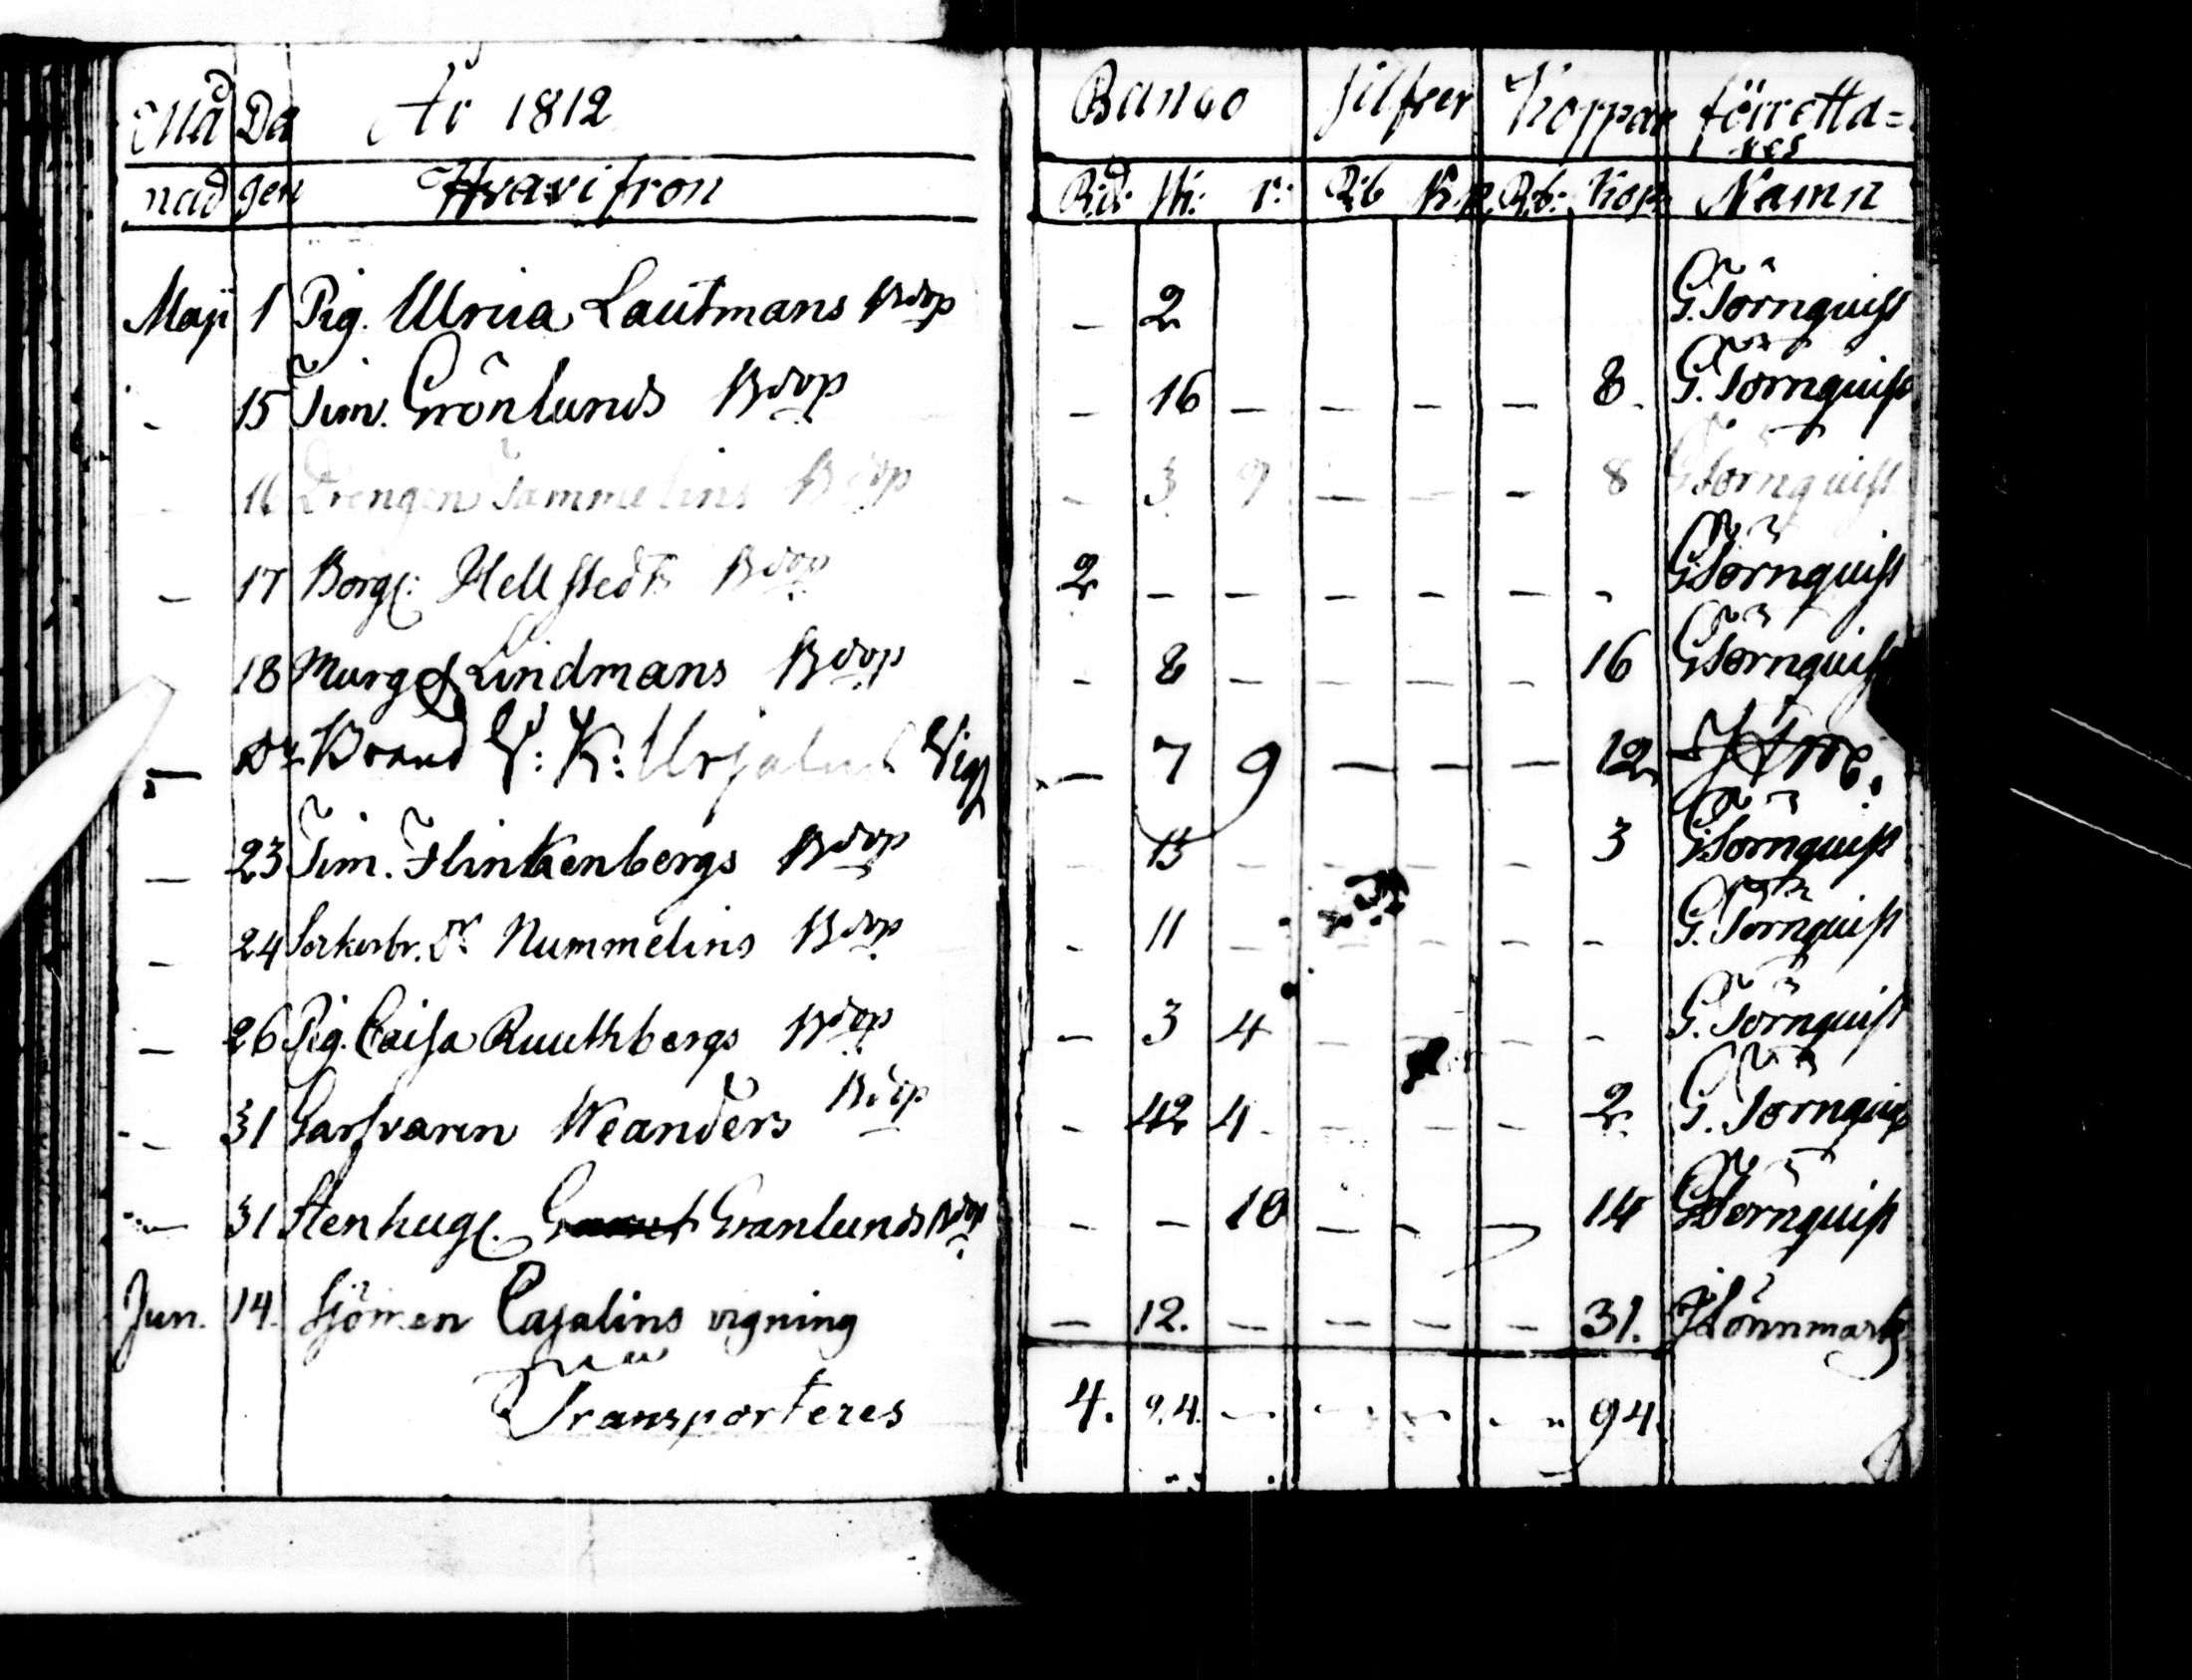 Må Da År 1812 Banco Silfver Koppar förretta=
res
nad gen Hvarifron R:d: sk: r: R:b K:p. R:b: Kop: Namn
Maji 1 Pig. Ulrica Lautmans Bdop - 2 G. Törnquist
- 15 Tim. Grönlunds Bdop - 16 - - - - 8. G. Törnquist
- 16 Drengen Tammelins Bdop - 3 9 - - - 8 G Törnquist
- 17 Borg: Hellstedts Bdop 2 - - - - - - G Törnquist
18 Murg: Lindmans Bdop - 8 - - - - 16 G Törnquist
- Brand V: K: Vig - 7 9 - - - 12
- 23 Tim. Flinkenbergs Bdop - 15 - - - - 3 G Törnquist
- 24 Sockerbr. Nummelins Bdop - 11 - - - - - G. Törnquist
- 26 Pig. Caisa Ruuthbergs Bdop - 3 4 - - - - G. Törnquist
- 31 Garfvaren Neanders Bdop - 42 4 - - - 2 G. Törnquist
- 31 Stenhug. Granlunds Bdop - - 10 - - - 14 G Törnquist
Jun. 14. Sjömen Cajalins vigning - 12. - - - - 31. J Lönnmark
Transporteres 4. 24. - - - - 94.